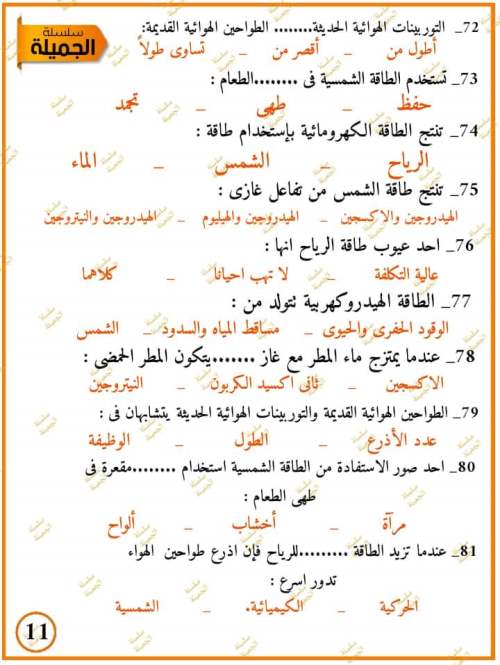 سلسلة
الجميلة
72_ التوربينات الهوائية الحديثة........ الطواحين الهوائية القديمة:
أطول من _ أقصر من _ تساوى طولاً
73_ تستخدم الطاقة الشمسية فى ........الطعام :
حفظ _ طهى _ تجمد
74_ تنتج الطاقة الكهرومائية بإستخدام طاقة :
الرياح _ الشمس _ الماء
75_ تنتج طاقة الشمس من تفاعل غازى :
الهيدروجين والاكسجين _ الهيدروجين والهيليوم _ الهيدروجين والنيتروجين
76_ احد عيوب طاقة الرياح انها :
عالية التكلفة _ لا تهب احيانا _ كلاهما
77_ الطاقة الهيدروكهربية تتولد من :
الوقود الحفرى والحيوى _ مساقط المياه والسدود _ الشمس
78_ عندما يمتزج ماء المطر مع غاز .......يتكون المطر الحمضى :
الاكسجين _ ثانى اكسيد الكربون _ النيتروجين
79_ الطواحين الهوائية القديمة والتوربينات الهوائية الحديثة يتشابهان فى :
عدد الأذرع _ الطول _ الوظيفة
80_ احد صور الاستفادة من الطاقة الشمسية استخدام ........مقعرة فى
طهى الطعام :
مرآة _ أخشاب _ ألواح
81_ عندما تزيد الطاقة .........للرياح فإن اذرع طواحين الهواء
تدور اسرع :
الحركية _ الكيميائية. _ الشمسية
11